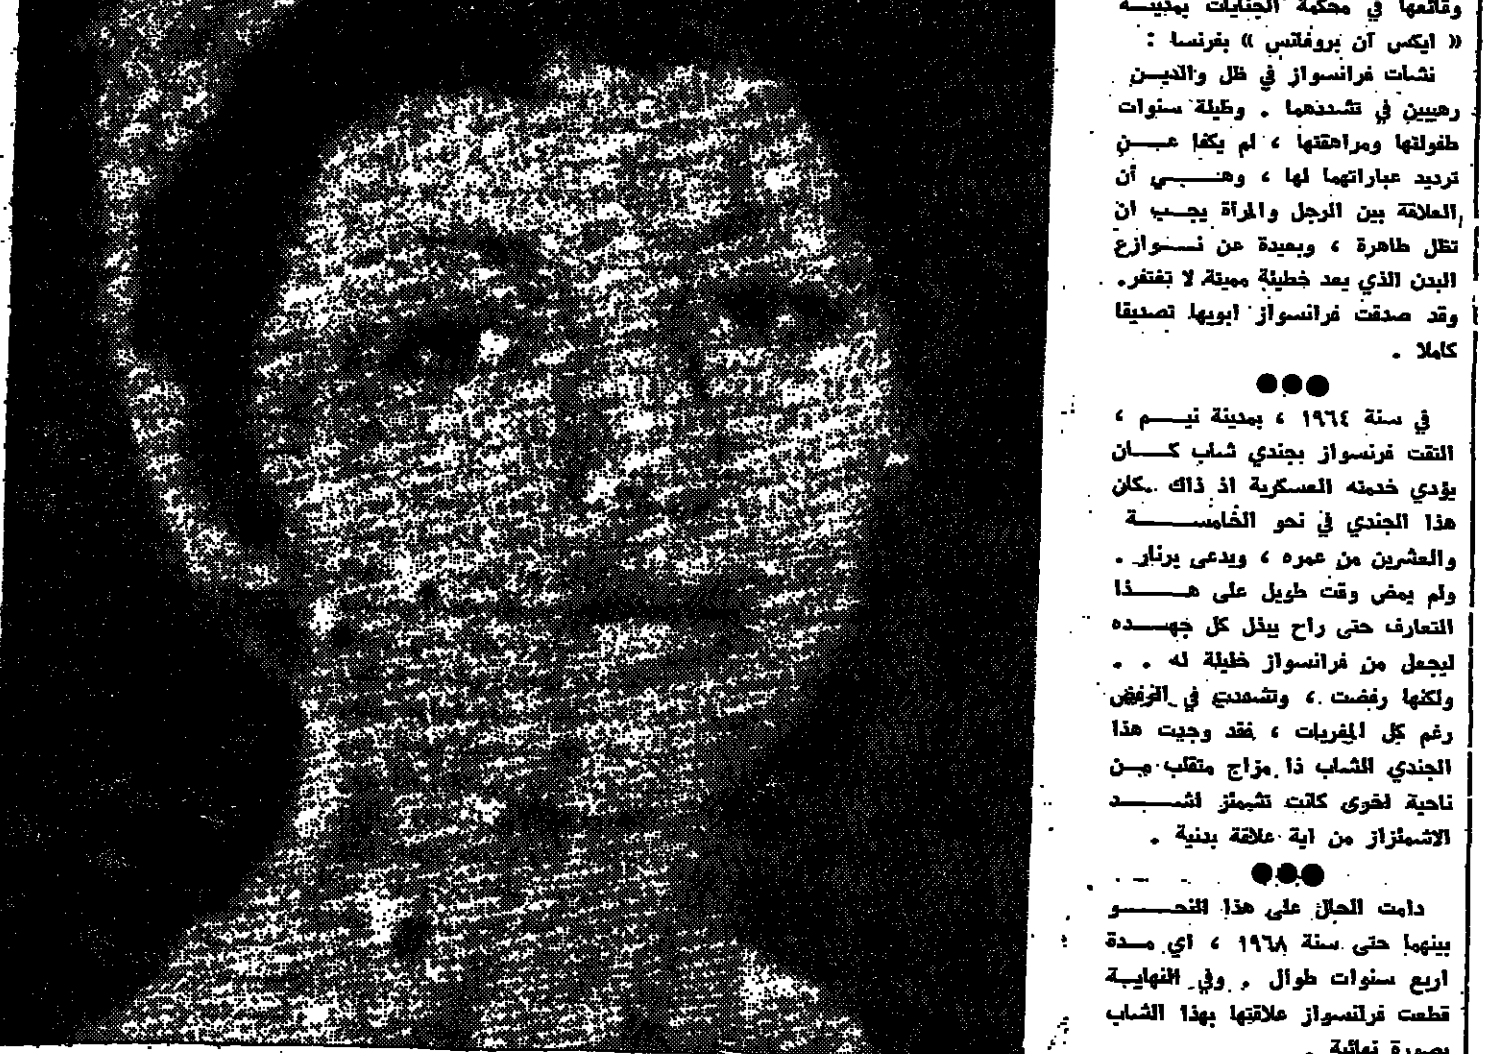 وقائعها في محكمة الجنايات بمدينـــة
« ايكس آن بروفانس » بفرنسا :
نشأت فرانسواز في ظل والديـــن
رهيبين في تشددهما . وطيلة سنوات
طفولتها ومراهقتها ، لم يكفا عـــن
ترديد عباراتهما لها ، وهـــي أن
العلاقة بين الرجل والمرأة يجـب ان
تظل طاهرة ، وبعيدة عن نـــوازع
البدن الذي يعد خطيئة مميتة لا تغتفر .
وقد صدقت فرانسواز ابويها تصديقا
كاملا .
●●●
في سنة ١٩٦٤ ، بمدينة نيـــم ،
التقت فرنسواز بجندي شاب كـــان
يؤدي خدمته العسكرية اذ ذاك . كان
هذا الجندي في نحو الخامســـة
والعشرين من عمره ، ويدعى برنار .
ولم يمض وقت طويل على هـــذا
التعارف حتى راح يبذل كل جهـــده
ليجعل من فرانسواز خليلة له . .
ولكنها رفضت ، وتشددت في الرفض
رغم كل المغريات ، فقد وجدت هذا
الجندي الشاب ذا مزاج متقلب مـن
ناحية اخرى كانت تشمئز اشـــد
الاشمئزاز من اية علاقة بدنية .
●●●
دامت الحال على هذا النحـــو
بينهما حتى سنة ١٩٦٨ ، اي مـدة
اربع سنوات طوال . وفي النهايـة
قطعت فرانسواز علاقتها بهذا الشاب
بصورة نهائية .